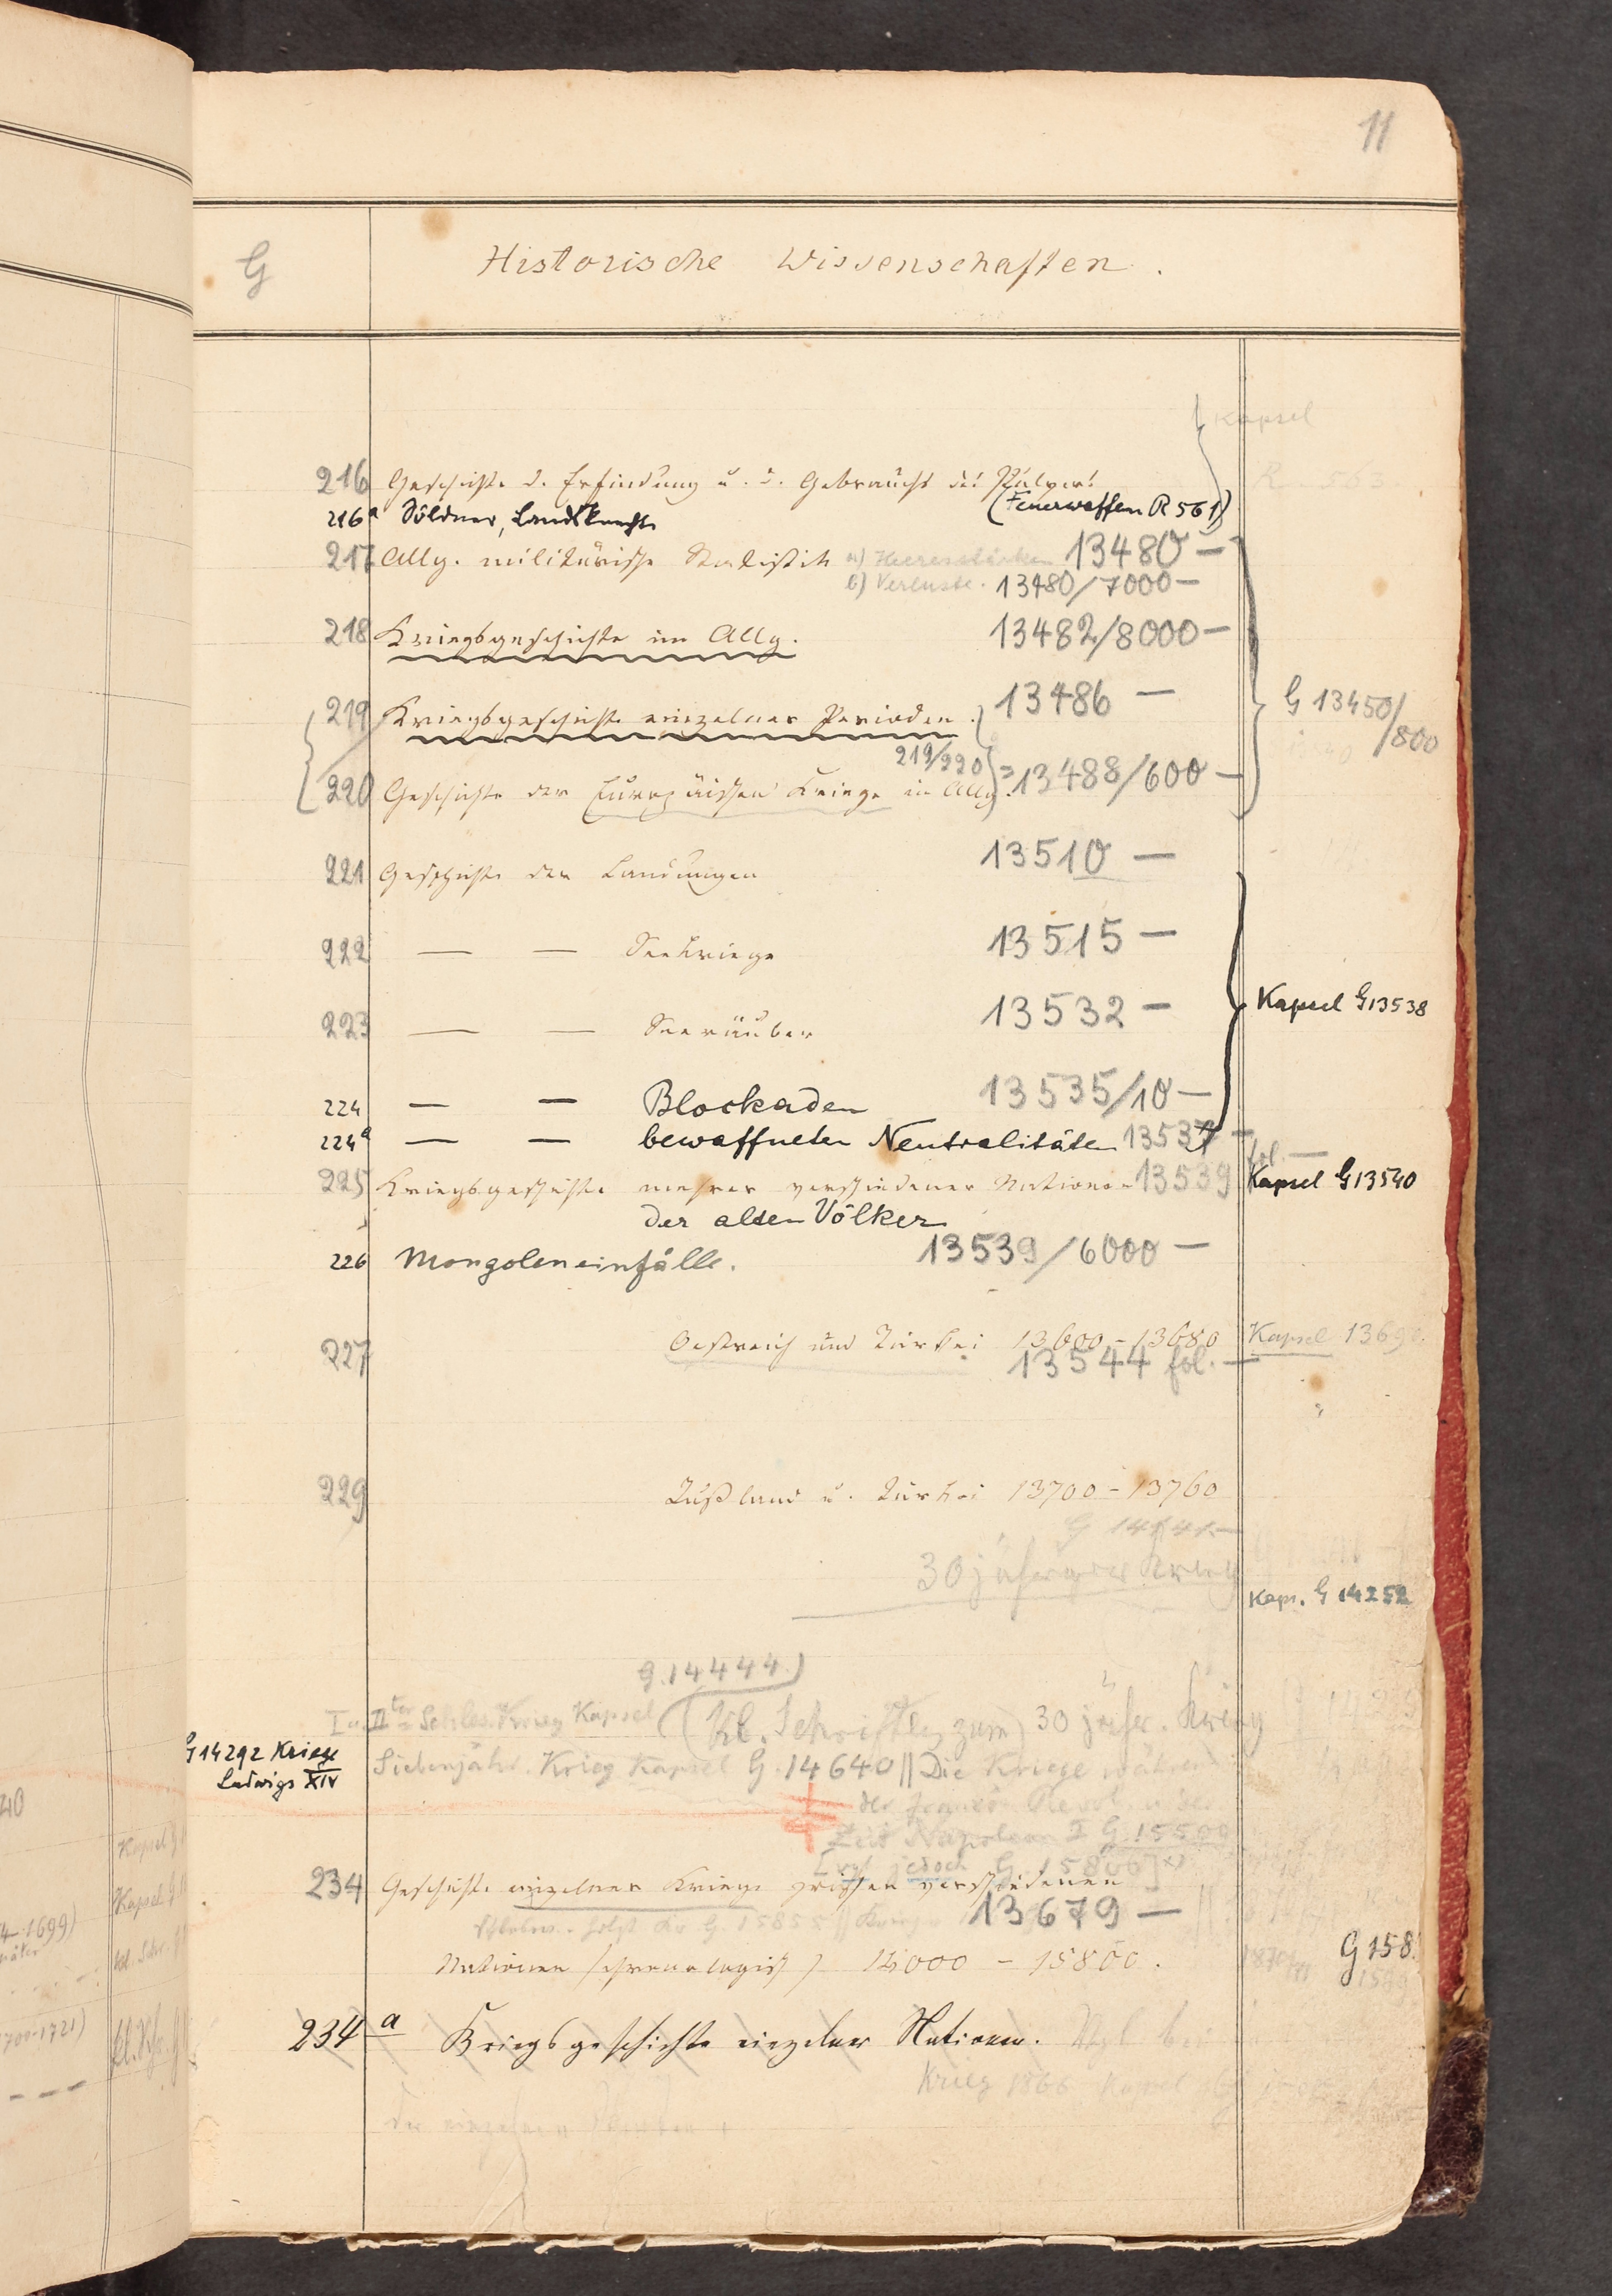 11
G Historische Wissenschaften.
Kapsel
216 Geschichte d. Erfindung u. d. Gebrauchs des Pulvers R 563
(Feuerwaffen R 561)
216a Söldner, Landsknechte
217 Allg. militärische Statistik a) Heeresstärken 13480 —
b) Verluste. 13480/7000 —
218 Kriegsgeschichte im Allg. 13482/8000 —
219 Kriegsgeschichte einzelner Perioden. 13486 —
G 13450/800
219/220 = 13488/600 —
220 Geschichte der Europäischen Kriege im Allg.
221 Geschichte der Landungen 13510 —
222 — — Seekriege 13515 —
223 — — Seeräuber 13532 —
Kapsel G 13538
224 — — Blockaden 13535/10 —
224a — — bewaffneten Neutralitäten 13537 —
fol. —
225 Kriegsgeschichte mehrer verschiedener Nationen 13539 Kapsel G 13540
der alten Völker
226 Mongoleneinfälle. 13539/6000 —
227 Oestreich und Türkei 13600 – 13680 Kapsel 13690.
13544 fol. —
229 Rußland u. Türkei 13700 – 13760
G 14141.—
30jähriger Krieg
Kaps. G 14252
G. 14444.)
I u. IIter Schles. Krieg Kapsel (Kl. Schriften zum 30 jähr. Krieg
G 14292 Kriege
Ludwigs XIV
Siebenjähr. Krieg Kapsel G. 14640 || Die Kriege während
der französ. Revol. u. der
Zeit Napoleon I G. 15500
[vgl. jedoch G. 15806]
234 Geschichte einzelner Kriege zwischen verschiedenen
13679 —
G. 15855
Nationen (chronologisch) 14000 – 15800.
1870/71 G 158
234 a Kriegsgeschichte einzelner Nationen. Vgl. bei
Krieg 1866 Kapsel
der einzelnen